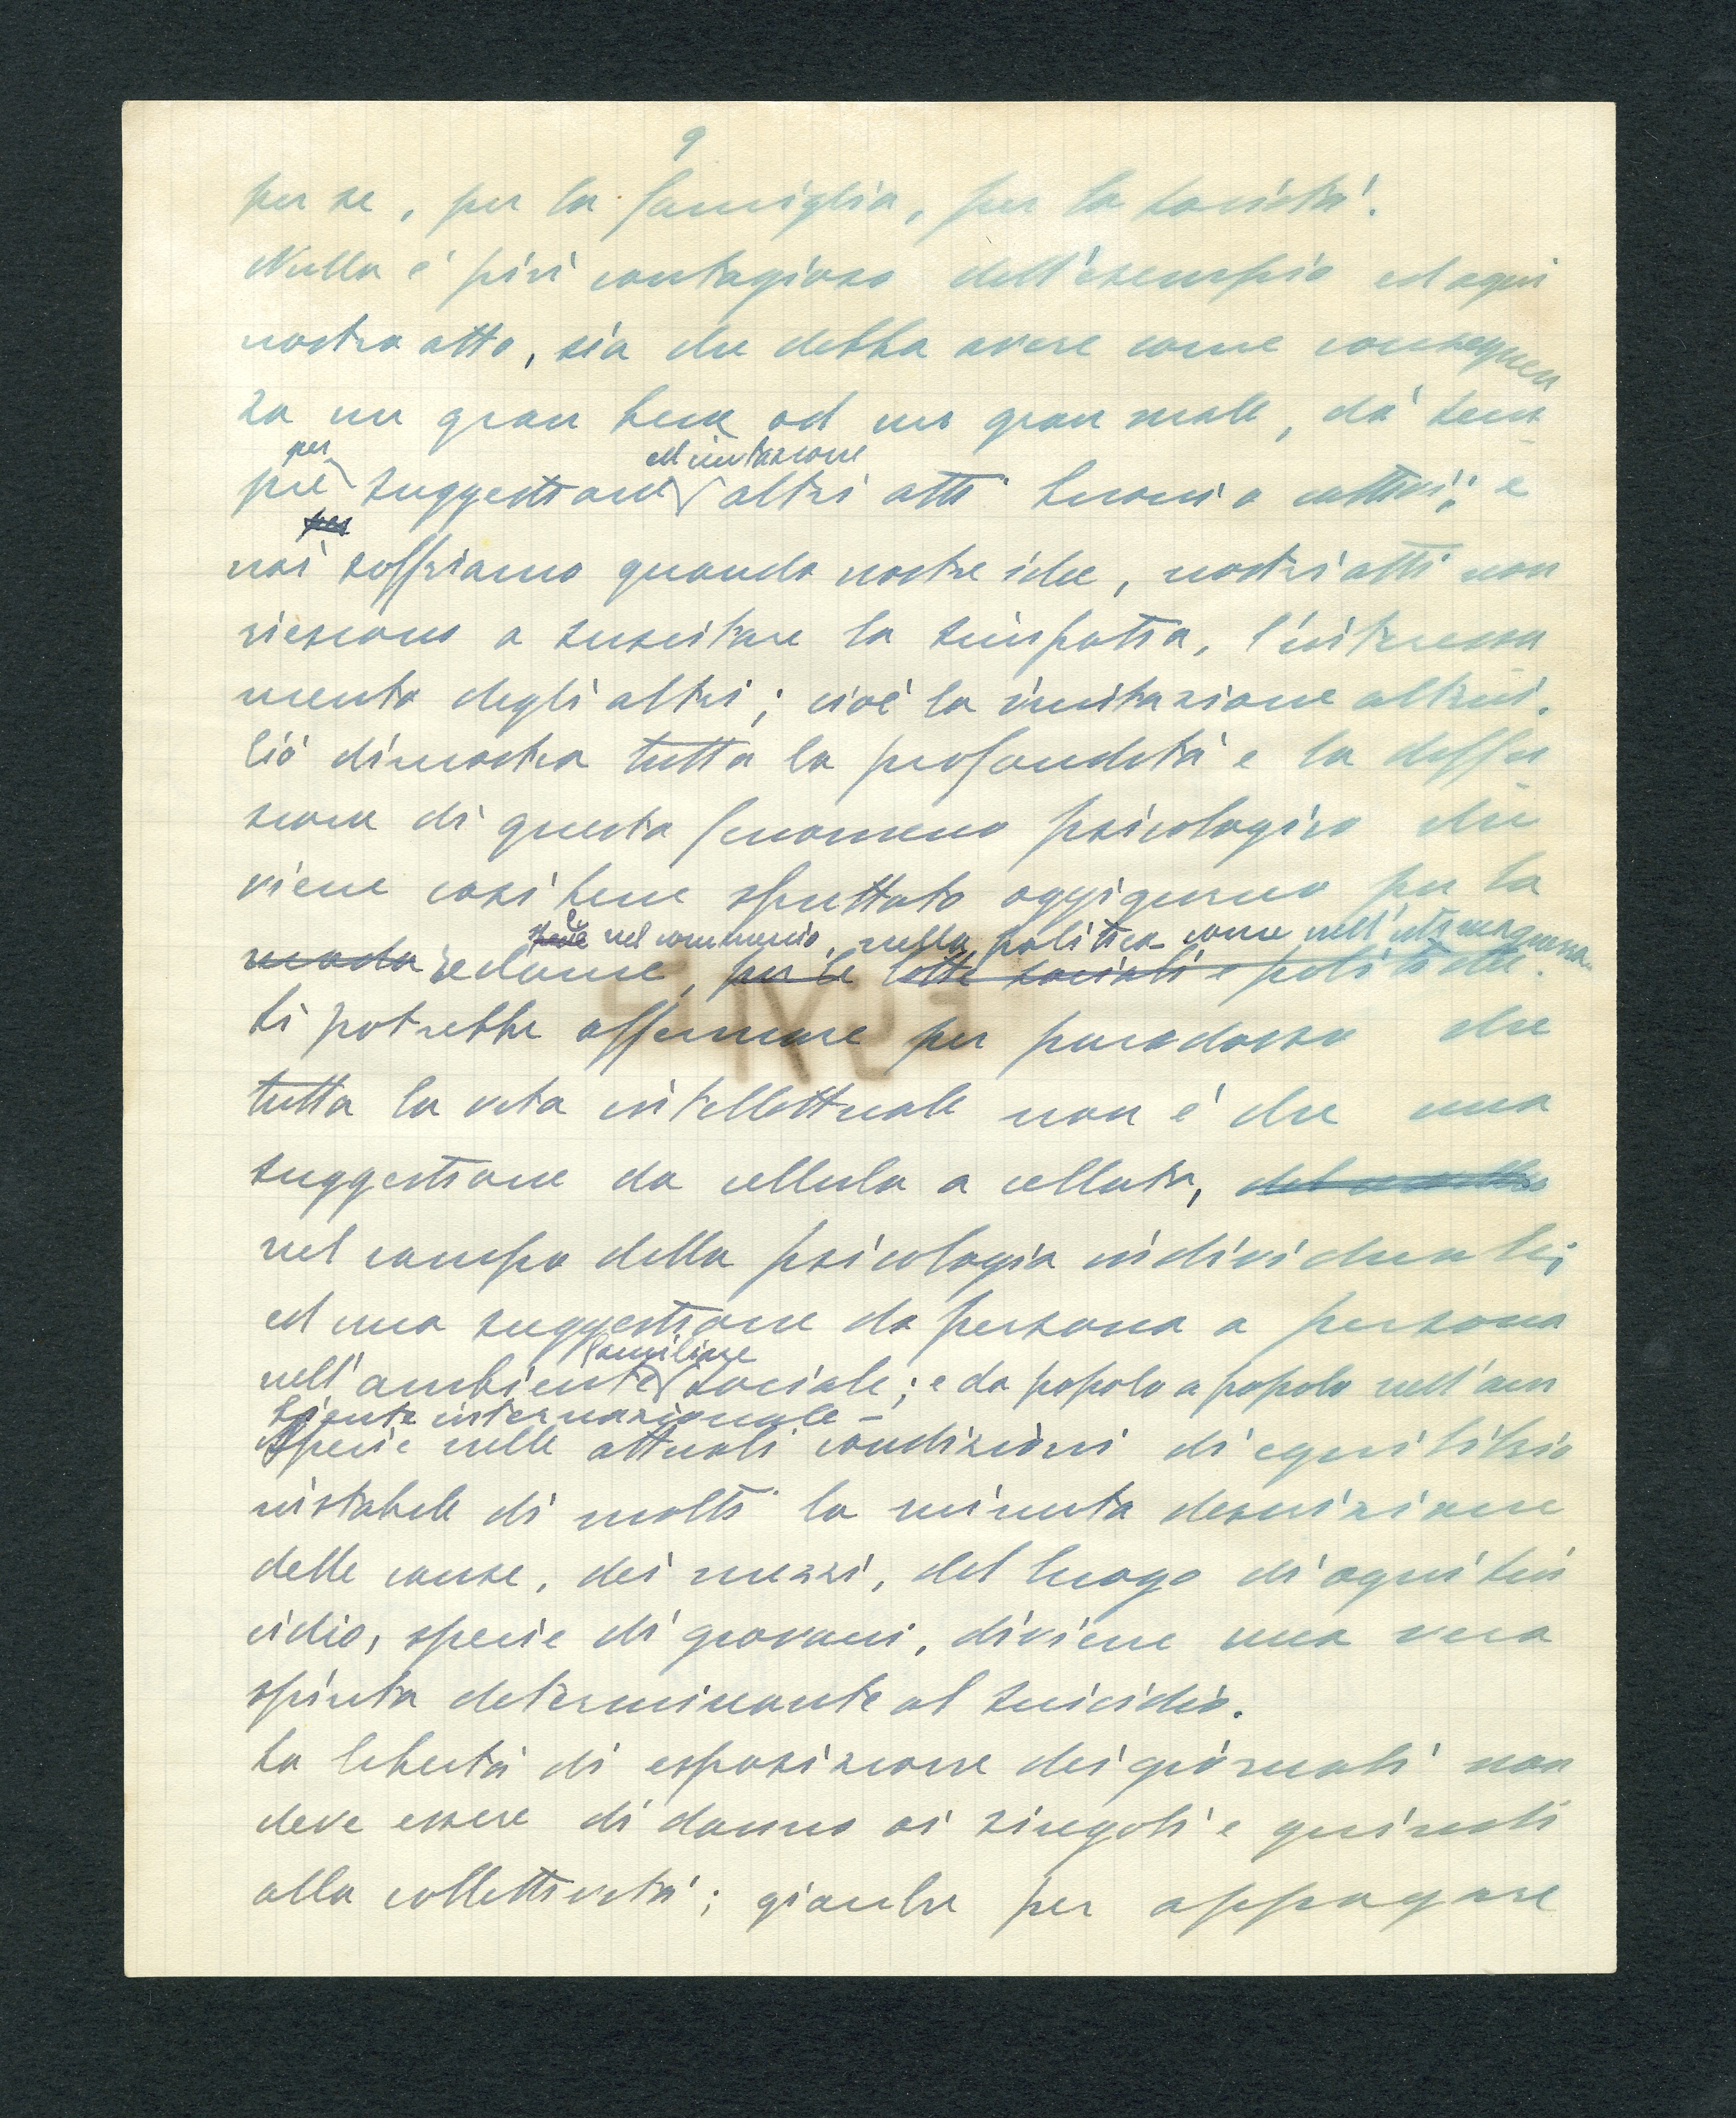 9
per se, per la famiglia, per la società.
Nulla è più contagioso dell'esempio ed ogni
nostro atto, sia che debba avere come conseguen
za un gran bene od un gran male, dà sem
per ed imitazione
pre suggestione altri atti buoni o cattivi; e
per
noi soffriamo quando nostre idee, nostri atti non
riescono a suscitare la simpatia, l'interessa
mento degli altri; cioè la imitazione altrui.
Ciò dimostra tutta la profondità e la diffu
sione di questo fenomeno psicologico che
viene così bene sfruttato oggigiorno per la
nel commercio, nella politica come nell'
moda reclame, per le lotte sociali e politiche.
Si potrebbe affermare per paradosso che
tutta la vita intellettuale non è che una
suggestione da cellula a cellula,
nel campo della psicologia individuale;
ed una suggestione da persona a persona
familiare
nell'ambiente sociale; e da popolo a popolo nell'am
biente internazionale -
Specie nelle attuali condizioni di equilibrio
instabile di molti la minuta descrizione
delle cause, dei mezzi, del luogo di ogni sui
cidio, specie di giovani, diviene una vera
spinta determinante al suicidio.
La libertà di esposizione dei giornali non
deve essere di danno ai singoli e quindi
alla collettività; gianche per appagare